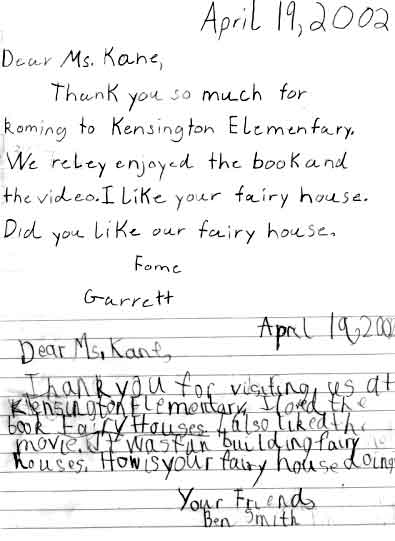 April 19, 2002
Dear Ms. Kane,
Thank you so much for
koming to Kensington Elementary.
We reley enjoyed the book and
the video. I Like your fairy house.
Did you Like our fairy house.
Fome
Garrett
April 19, 200
Dear Ms. Kane,
Thank you for visiting us at
Kensington Elementary. I loved the
book Fairy Houses. I also liked th
movie. It was fun building fairy
houses. How is your fairy house doing
Your Friend,
Ben Smith